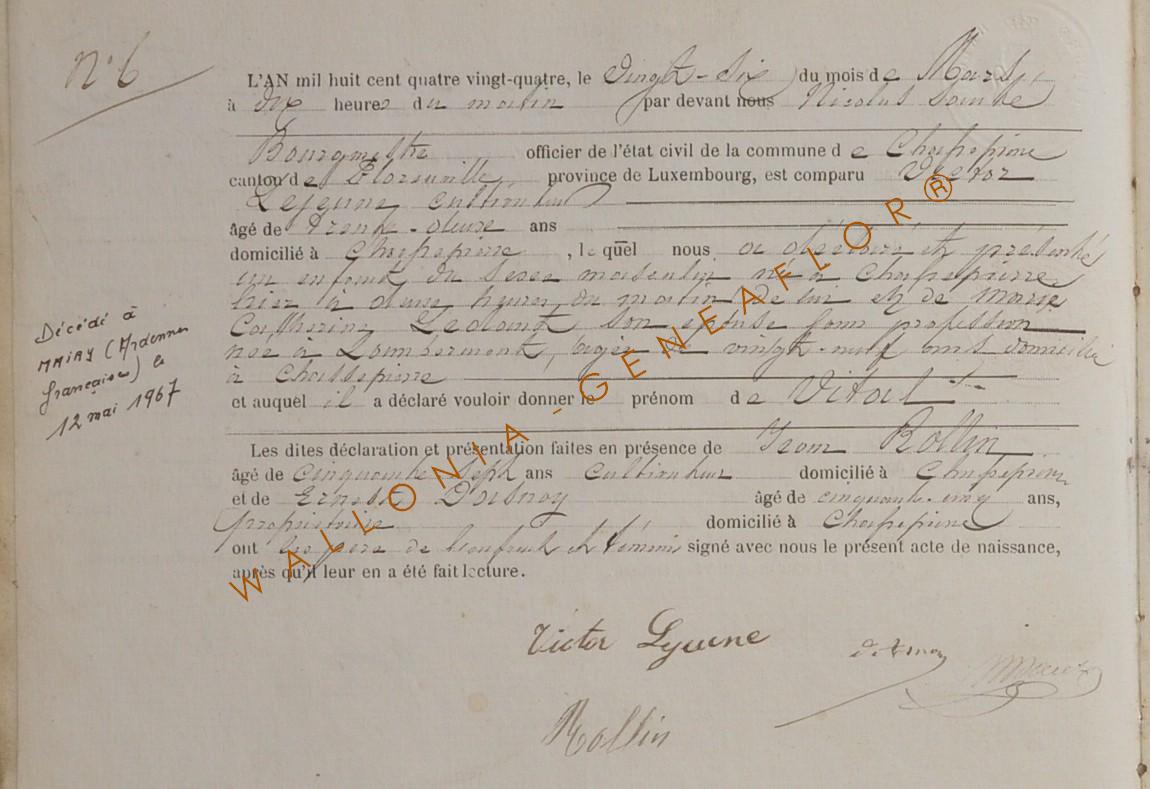 N° 6
L'AN mil huit cent quatre vingt-quatre, le Vingt-Six du mois de Mars,
à dix heures du matin par devant nous Nicolas
Bourgmestre officier de l'état civil de la commune de Chassepierre
canton de Florenville province de Luxembourg, est comparu Victor
Lejeune cultivateur
âgé de Trente-deux ans
domicilié à Chassepierre, lequel nous a déclaré et présenté
un enfant du sexe masculin né à Chassepierre
hier à deux heures du matin de lui et de Marie
Catherine son épouse sans profession
née à Lambermont, âgée de vingt-neuf ans domiciliée
à Chassepierre
et auquel il a déclaré vouloir donner le prénom de Vital
Les dites déclaration et présentation faites en présence de Jean Rollin
âgé de cinquante sept ans cultivateur domicilié à Chassepierre
et de Ernest âgé de cinquante-cinq ans,
propriétaire domicilié à Chassepierre
ont les père de l'enfant et témoins signé avec nous le présent acte de naissance,
après qu'il leur en a été fait lecture.
Décédé à
MAIRY (Ardennes
française) le
12 mai 1967
Victor Lejeune
Rollin
WALLONIA - GENEAFLOR®